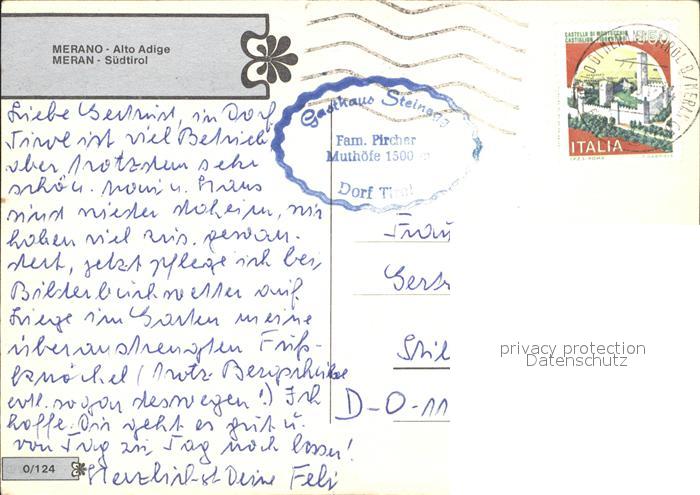 MERANO - Alto Adige
MERAN - Südtirol
Liebe Gertrud, in Dorf
Tirol ist viel Betrieb
aber trotzdem sehr
schön. u. Hans
sind wieder daheim, wir
haben viel zus. gewan-
dert, jetzt pflege ich bei
Bilderbuchwetter auf
Liege im Garten meine
überanstrengten Fuß-
knöchel (trotz Bergschuhe
evtl. sogar deswegen!) Ich
hoffe Dir geht es gut u.
von Tag zu Tag noch besser!
Herzlichst Deine Feli
0/124
Gasthaus Steinegg
Fam. Pircher
Muthöfe 1500 m
Dorf Tirol
CASTELLO DI MONTECCHIO
CASTIGLION FIORENTINO
350
ITALIA
Frau
Gertr
Stil
D-O-11
privacy protection
Datenschutz